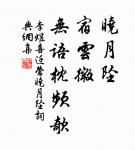 曉月墜
宿雲微
無語枕頻欹
李煜喜迁莺曉月墜詞
典網集